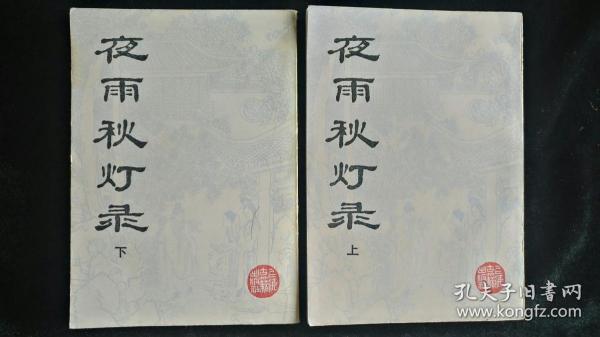 夜雨秋灯录
下
夜雨秋灯录
上
孔夫子旧书网
www.kongfz.com